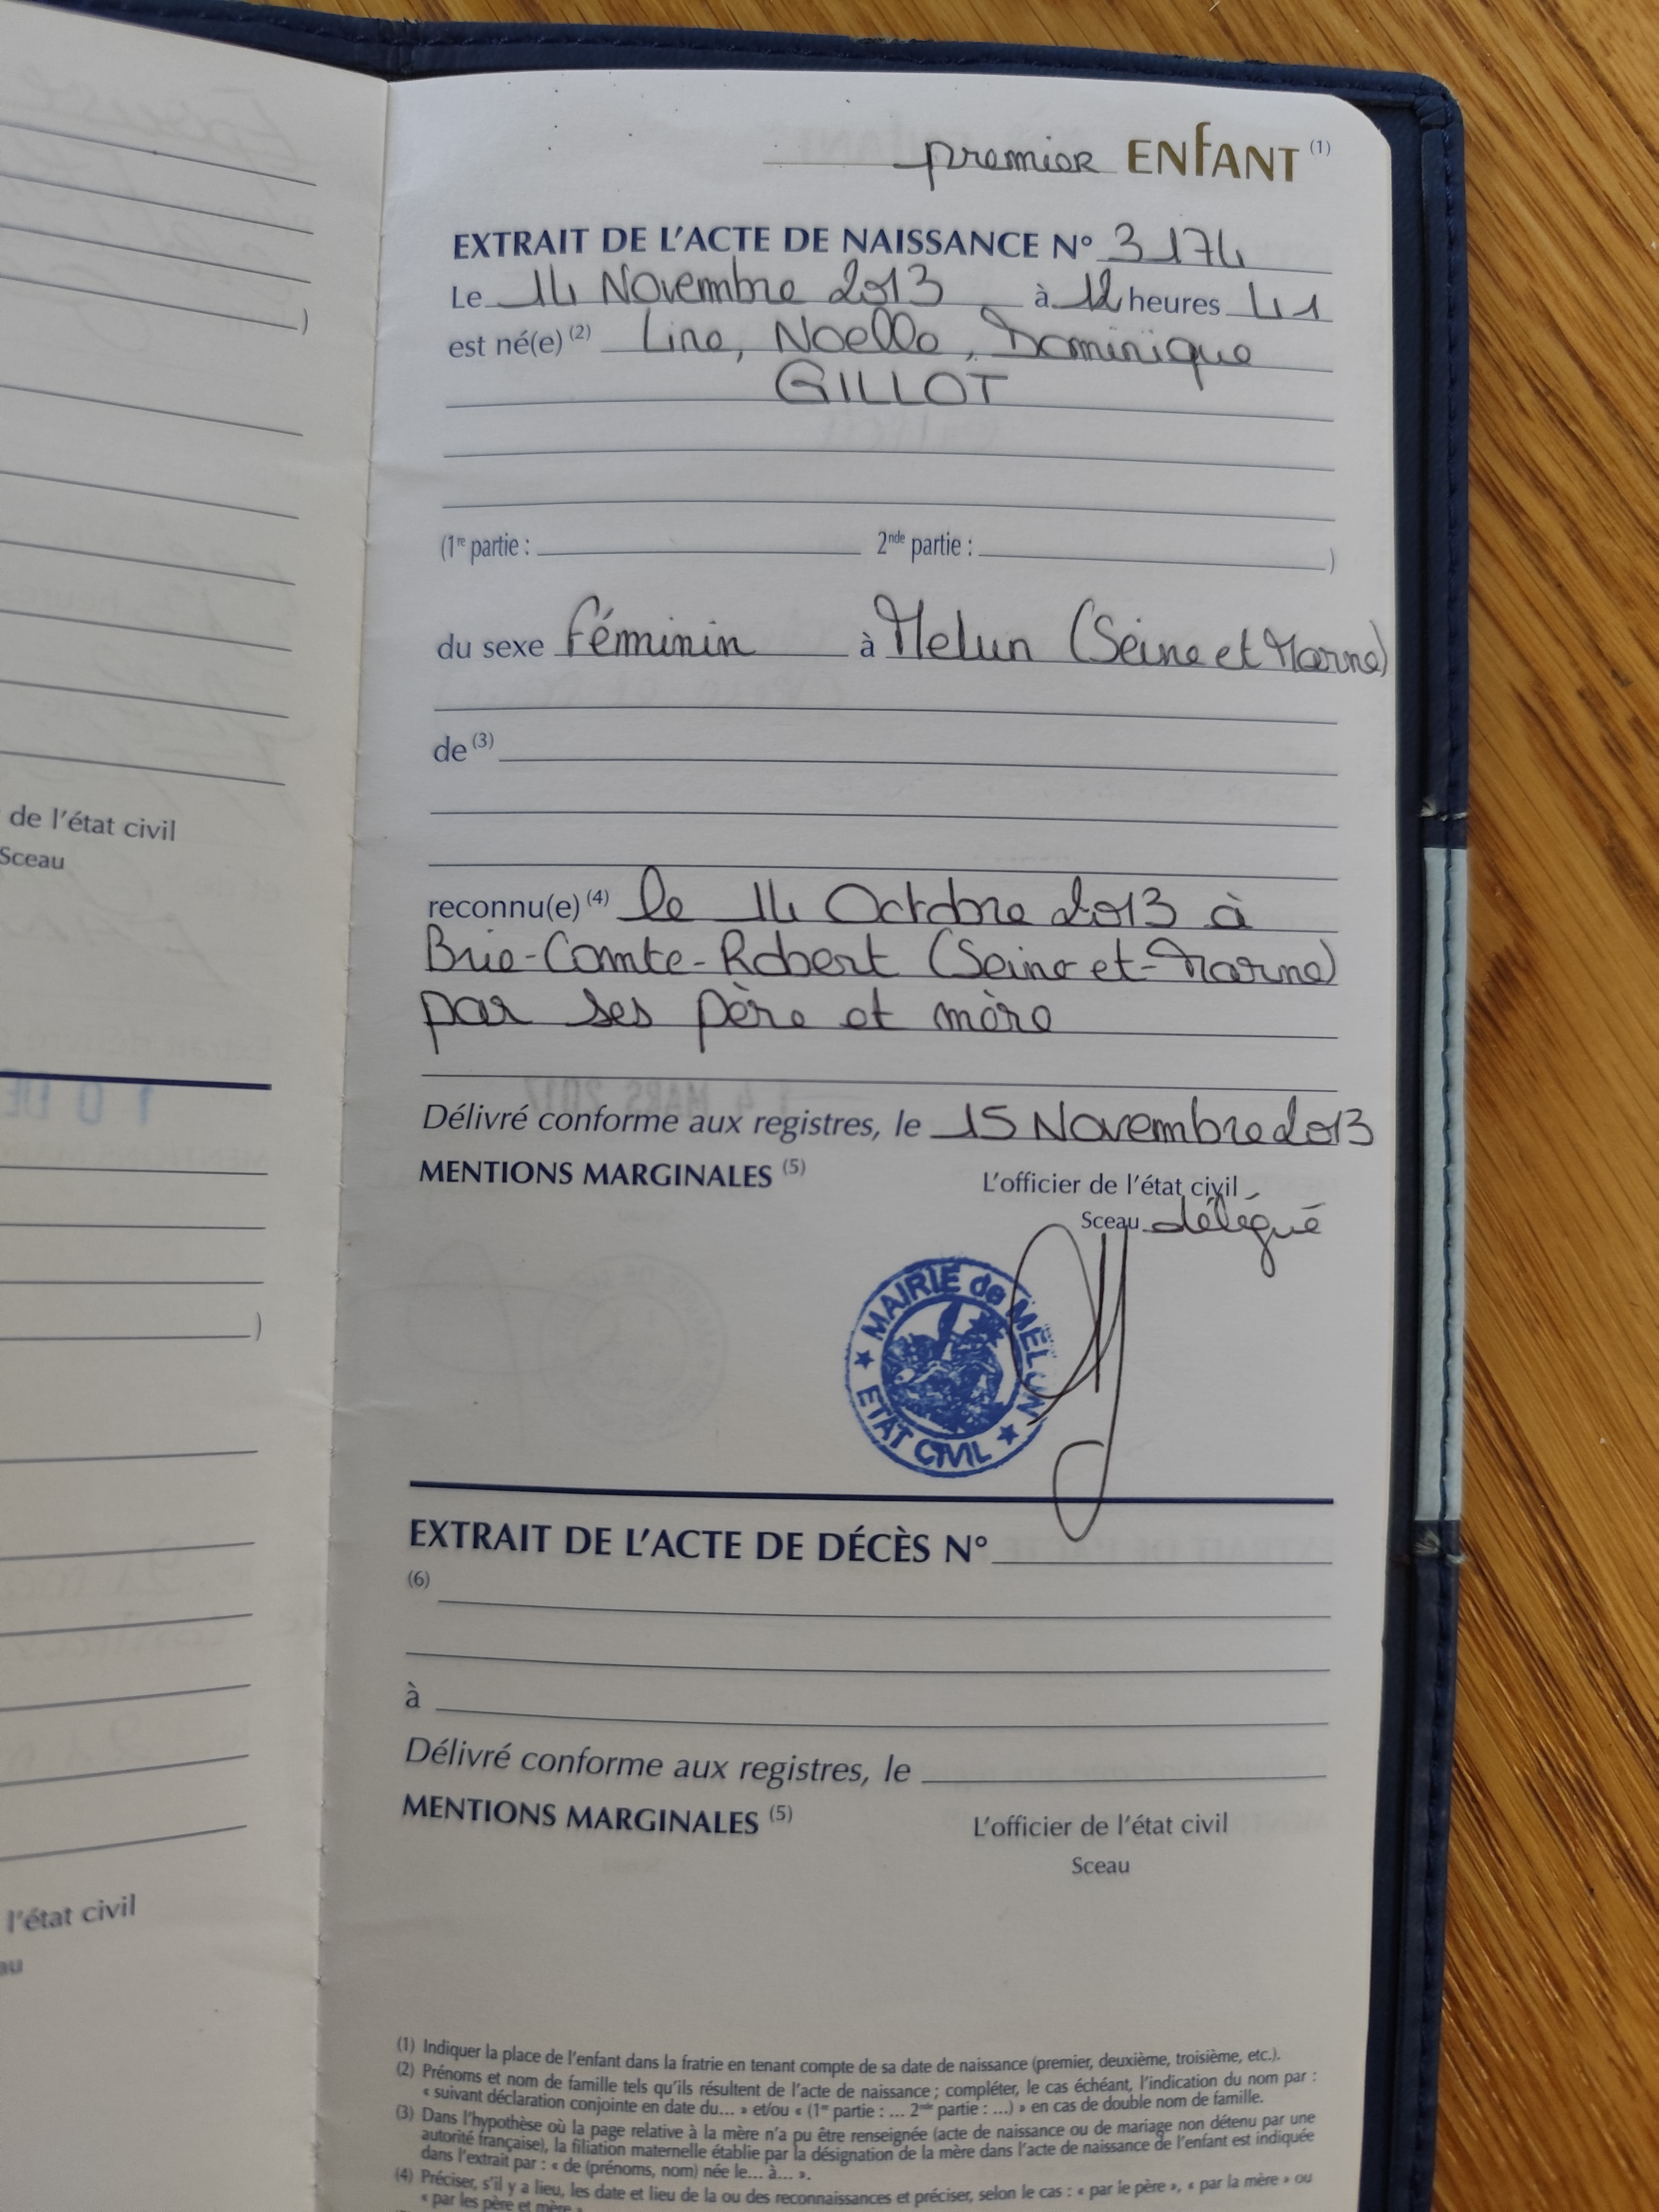 premier ENFANT (1)
EXTRAIT DE L'ACTE DE NAISSANCE N° 3174
Le 14 Novembre 2013 à 12 heures 41
est né(e) (2) Line, Noelle, Dominique
GILLOT
(1re partie : 2nde partie : )
du sexe Féminin à Melun (Seine et Marne)
de (3)
reconnu(e) (4) le 14 Octobre 2013 à
Brie-Comte-Robert (Seine-et-Marne)
par ses père et mère
Délivré conforme aux registres, le 15 Novembre 2013
MENTIONS MARGINALES (5) L'officier de l'état civil
Sceau délégué
MAIRIE de MELUN
ETAT CIVIL
EXTRAIT DE L'ACTE DE DÉCÈS N°
(6)
à
Délivré conforme aux registres, le
MENTIONS MARGINALES (5) L'officier de l'état civil
Sceau
(1) Indiquer la place de l'enfant dans la fratrie en tenant compte de sa date de naissance (premier, deuxième, troisième, etc.).
(2) Prénoms et nom de famille tels qu'ils résultent de l'acte de naissance ; compléter, le cas échéant, l'indication du nom par :
« suivant déclaration conjointe en date du... » et/ou « (1re partie : ... 2nde partie : ...) » en cas de double nom de famille.
(3) Dans l'hypothèse où la page relative à la mère n'a pu être renseignée (acte de naissance ou de mariage non détenu par une
autorité française), la filiation maternelle établie par la désignation de la mère dans l'acte de naissance de l'enfant est indiquée
dans l'extrait par : « de (prénoms, nom) née le... à... ».
(4) Préciser, s'il y a lieu, les date et lieu de la ou des reconnaissances et préciser, selon le cas : « par le père », « par la mère » ou
« par les père et mère »
de l'état civil
Sceau
l'état civil